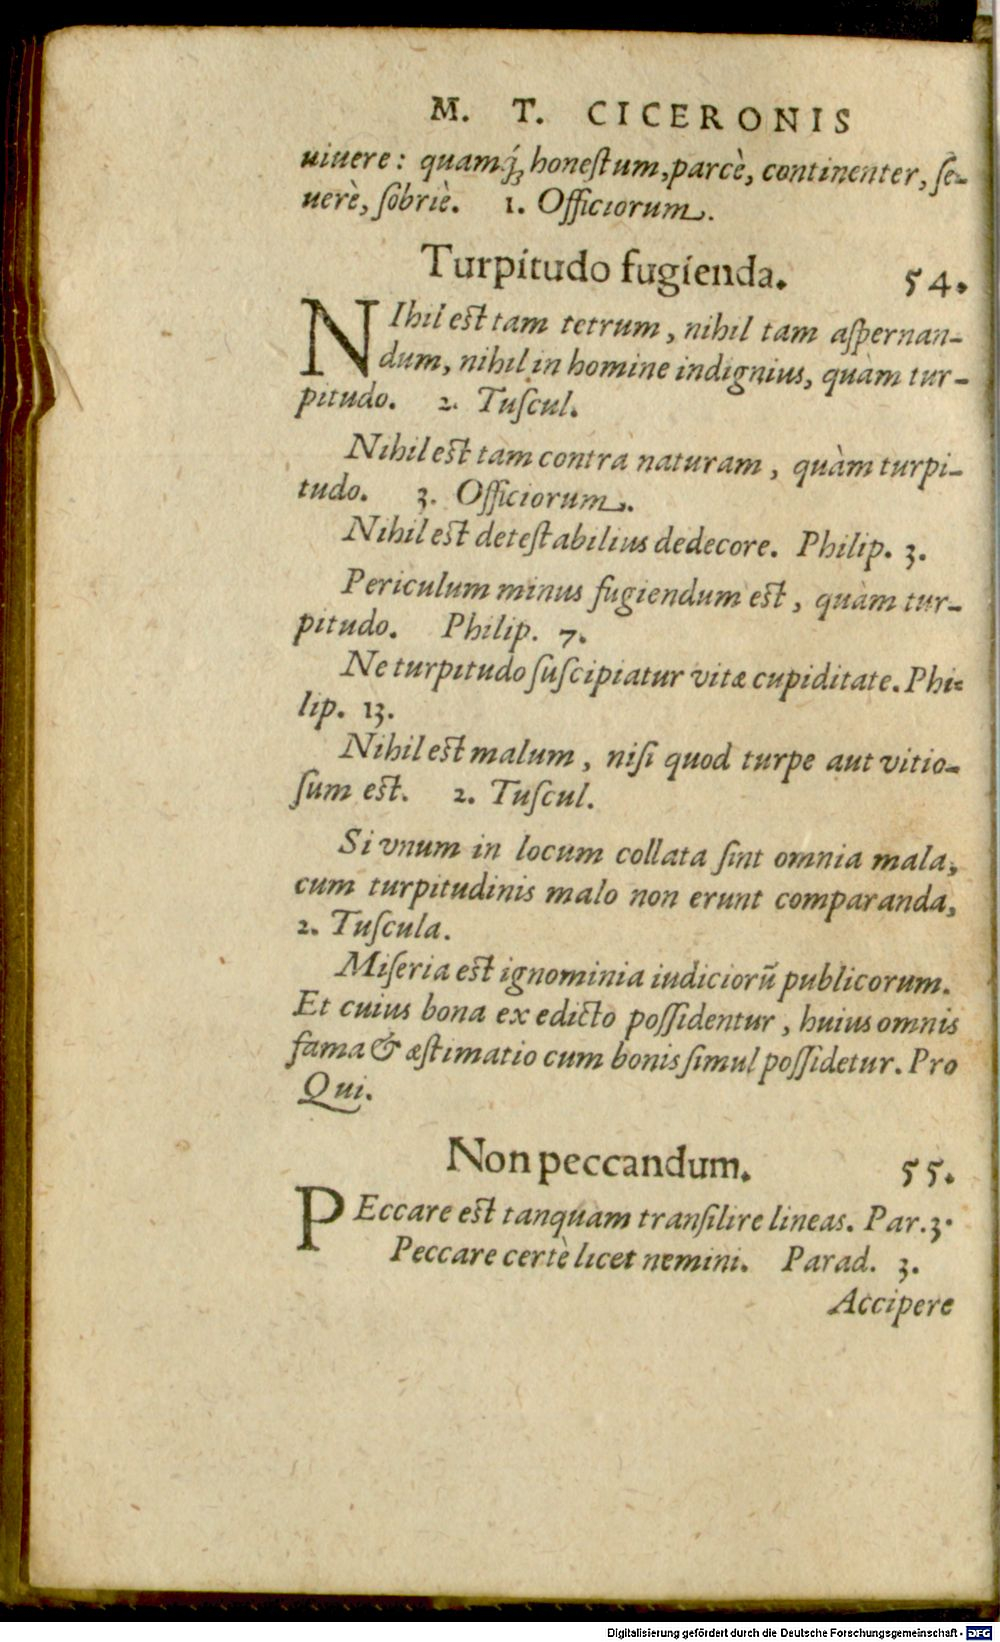 M. T. CICERONIS
uiuere: quamq́; honeſtum, parcè, continenter, ſe-
uerè, ſobriè. 1. Officiorum.
Turpitudo fugienda. 54.
NIhil est tam tetrum, nihil tam aſpernan-
dum, nihil in homine indignius, quàm tur-
pitudo. 2. Tuſcul.
Nihil est tam contra naturam, quàm turpi-
tudo. 3. Officiorum.
Nihil est deteſtabilius dedecore. Philip. 3.
Periculum minus fugiendum est, quàm tur-
pitudo. Philip. 7.
Ne turpitudo ſuſcipiatur vitæ cupiditate. Phi-
lip. 13.
Nihil est malum, niſi quod turpe aut vitio-
ſum est. 2. Tuſcul.
Si vnum in locum collata ſint omnia mala,
cum turpitudinis malo non erunt comparanda,
2. Tuſcula.
Miſeria est ignominia iudiciorū publicorum.
Et cuius bona ex edicto poſſidentur, huius omnis
fama & æſtimatio cum bonis ſimul poſſidetur. Pro
Qui.
Non peccandum. 55.
PEccare est tanquam tranſilire lineas. Par. 3.
Peccare certè licet nemini. Parad. 3.
Accipere
Digitalisierung gefördert durch die Deutsche Forschungsgemeinschaft - DFG